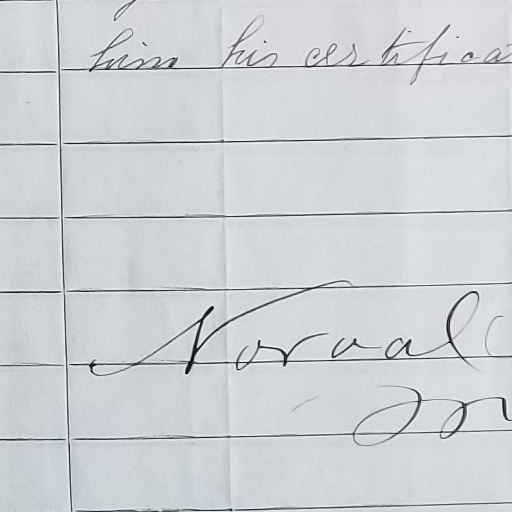 him his certifica
Norval